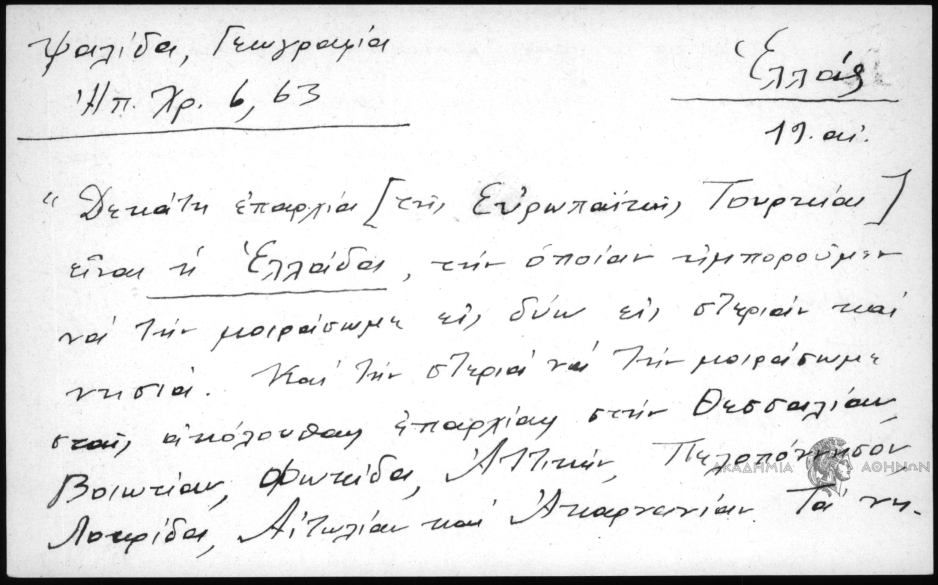 Ψαλίδα, Γεωγραφία
Ἠπ. Χρ. 6, 63
Ἑλλάς
19. αἰ.
"Δεκάτη ἐπαρχία [τῆς Εὐρωπαϊκῆς Τουρκίας]
εἶναι ἡ Ἑλλάδα, τὴν ὁποίαν ἠμποροῦμεν
νά τήν μοιράσωμε εἰς δύω εἰς στεριάν καί
νησιά. Καί τήν στεριά νά τήν μοιράσωμε
σταῖς ἀκόλουθαις ἐπαρχίαις στήν Θεσσαλίαν,
Βοιωτίαν, Φωκίδα, Ἀττικήν, Πελοπόννησον
Λοκρίδα, Αἰτωλίαν καί Ἀκαρνανίαν. Τά νη-
ΑΚΑΔΗΜΙΑ ΑΘΗΝΩΝ